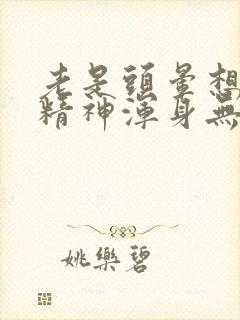 老是頭暈想
精神渾身無
姚樂碧